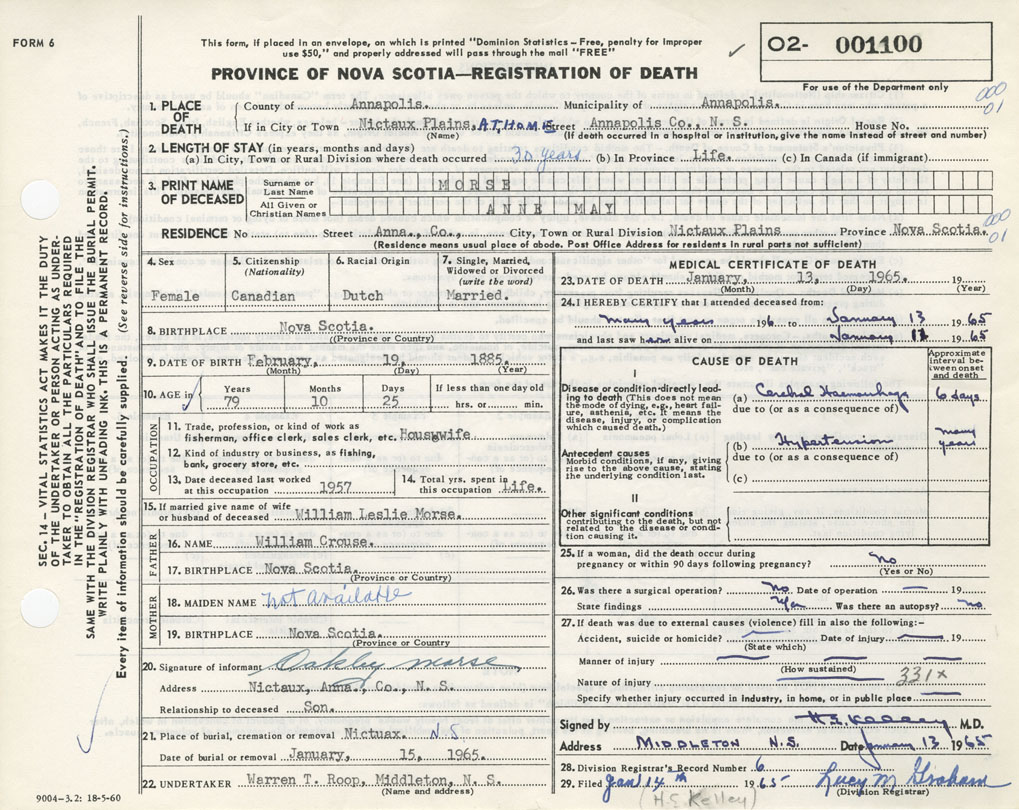 FORM 6
This form, if placed in an envelope, on which is printed "Dominion Statistics – Free, penalty for improper
use $50," and properly addressed will pass through the mail "FREE"
✓
O2- 001100
For use of the Department only
PROVINCE OF NOVA SCOTIA—REGISTRATION OF DEATH
000
01
1. PLACE OF DEATH
County of Annapolis. Municipality of Annapolis.
If in City or Town Nictaux Plains, AT HOME Street Annapolis Co., N. S. House No.
(Name) (If death occurred in a hospital or institution, give the name instead of street and number)
2. LENGTH OF STAY (in years, months and days)
(a) In City, Town or Rural Division where death occurred 30 years (b) In Province Life. (c) In Canada (if immigrant)
3. PRINT NAME OF DECEASED
Surname or Last Name MORSE
All Given or Christian Names ANNE MAY
000
01
RESIDENCE No Street Anna., Co., City, Town or Rural Division Nictaux Plains Province Nova Scotia.
(Residence means usual place of abode. Post Office Address for residents in rural parts not sufficient)
4. Sex
Female
5. Citizenship
(Nationality)
Canadian
6. Racial Origin
Dutch
7. Single, Married,
Widowed or Divorced
(write the word)
Married.
8. BIRTHPLACE Nova Scotia.
((Province or Country)
9. DATE OF BIRTH February, 19, 1885.
(Month) (Day) (Year)
10. AGE in
Years Months Days If less than one day old
79 10 25 hrs. or min.
OCCUPATION
11. Trade, profession, or kind of work as
fisherman, office clerk, sales clerk, etc. Housewife
12. Kind of industry or business, as fishing,
bank, grocery store, etc.
13. Date deceased last worked
at this occupation 1957
14. Total yrs. spent in
this occupation Life.
15. If married give name of wife
or husband of deceased William Leslie Morse.
FATHER
16. NAME William Crouse.
17. BIRTHPLACE Nova Scotia.
(Province or Country)
MOTHER
18. MAIDEN NAME not available
19. BIRTHPLACE Nova Scotia.
(Province or Country)
20. Signature of informant Oakley Morse
Address Nictaux, Anna., Co., N. S.
Relationship to deceased Son.
21. Place of burial, cremation or removal Nictuax. N.S
Date of burial or removal January, 15, 1965.
22. UNDERTAKER Warren T. Roop, Middleton, N. S.
(Name and address)
MEDICAL CERTIFICATE OF DEATH
23. DATE OF DEATH January, 13, 1965. 19
(Month) (Day) (Year)
24. I HEREBY CERTIFY that I attended deceased from:
many years 196 to January 13 1965
and last saw h alive on January 1965
CAUSE OF DEATH
Approximate
interval between
onset
and death
I
Disease or condition directly leading
to death (This does not mean
the mode of dying, e.g., heart failure,
asthenia, etc. It means the
disease, injury, or complication
which caused death.)
(a) Cerebral Haemorrhage 6 days
due to (or as a consequence of)
Antecedent causes
Morbid conditions, if any, giving
rise to the above cause, stating
the underlying condition last.
(b) Hypertension many years
due to (or as a consequence of)
(c)
II
Other significant conditions
contributing to the death, but not
related to the disease or condition
causing it.
25. If a woman, did the death occur during
pregnancy or within 90 days following pregnancy? No
(Yes or No)
26. Was there a surgical operation? No Date of operation — 19
State findings Was there an autopsy? no
27. If death was due to external causes (violence) fill in also the following:–
Accident, suicide or homicide? — Date of injury — 19
(State which)
Manner of injury —
(How sustained)
Nature of injury — 331X
Specify whether injury occurred in industry, in home, or in public place —
Signed by H.E. Kelley M.D.
Address MIDDLETON N.S. Date January 13 1965
28. Division Registrar's Record Number 6
29. Filed Jan 14th 1965 Lucy M Graham
(H.E. Kelley) (Division Registrar)
SEC. 14 – VITAL STATISTICS ACT MAKES IT THE DUTY
OF THE UNDERTAKER OR PERSON ACTING AS UNDERTAKER
TO OBTAIN ALL THE PARTICULARS REQUIRED
IN THE "REGISTRATION OF DEATH" AND TO FILE THE
SAME WITH THE DIVISION REGISTRAR WHO SHALL ISSUE THE BURIAL PERMIT.
WRITE PLAINLY WITH UNFADING INK. THIS IS A PERMANENT RECORD.
Every item of information should be carefully supplied. (See reverse side for instructions.)
9004-3.2: 18-5-60